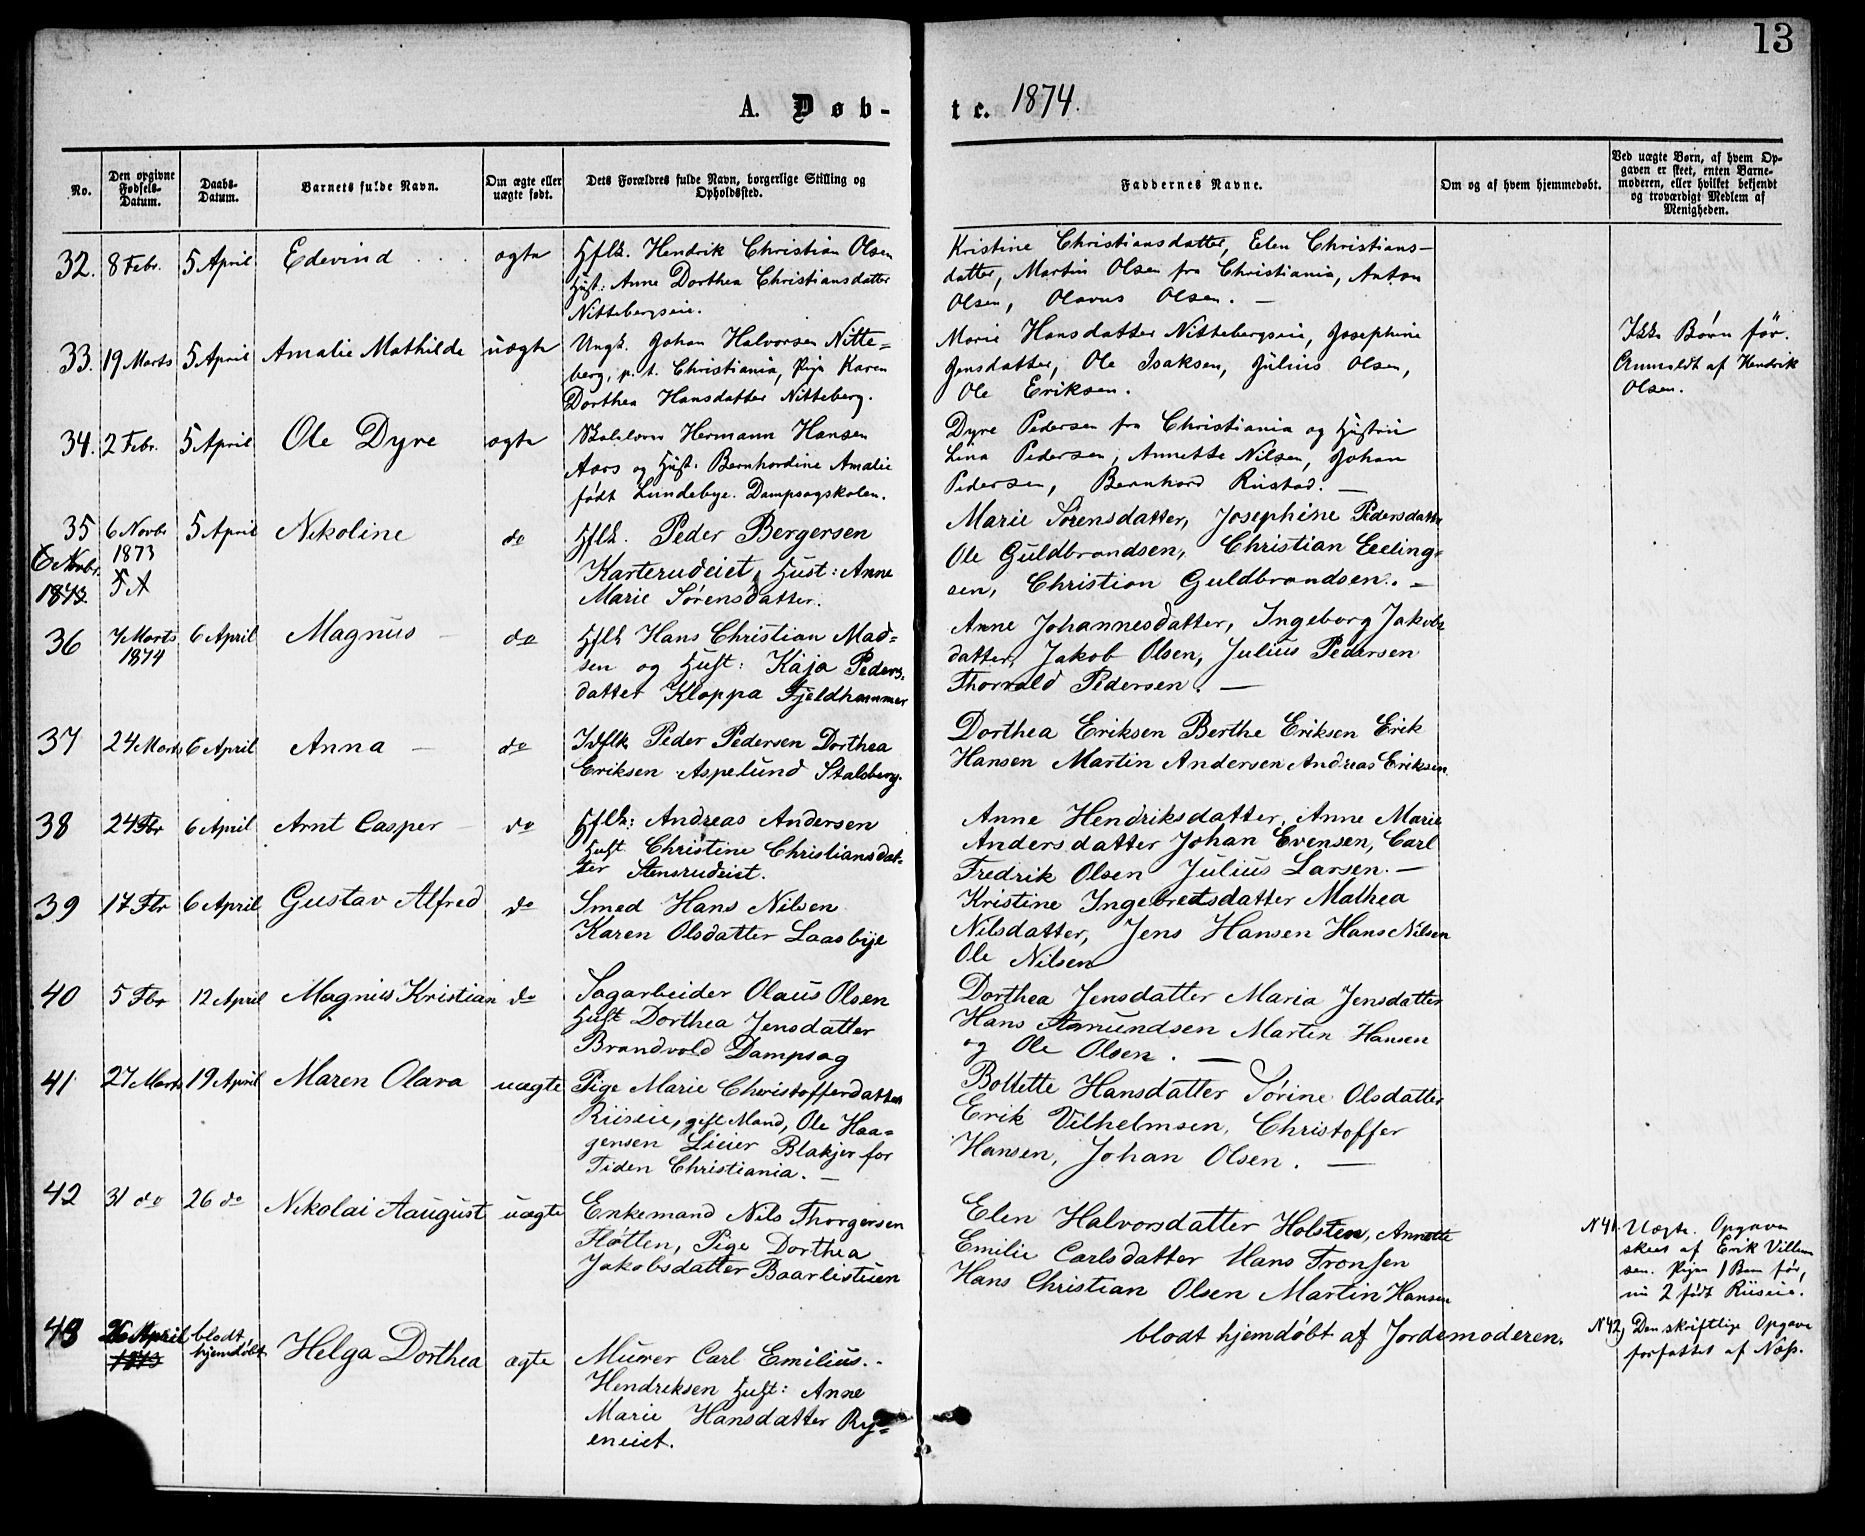 13
A. Døb-
te. 1874.
No.
Den opgivne Fødsels-Datum.
Daabs-Datum.
Barnets fulde Navn.
Om ægte eller uægte født.
Dets Forældres fulde Navn, borgerlige Stilling og Opholdssted.
Faddernes Navne.
Om og af hvem hjemmedøbt.
Ved uægte Børn, af hvem Opgaven er skeet, enten Barnemoderen, eller hvilket bekjendt og troværdigt Medlem af Menigheden.
32. 8 Febr. 5 April Edevind ægte Hflk. Hendrik Christian Olsen
Hust: Anne Dorthea Christiansdatter
Nittebergseie.
Kristine Christiansdatter, Elen Christians-
datter, Martin Olsen fra Christiania, Anton
Olsen, Olavus Olsen. —
33. 19 Marts 5 April Amalie Mathilde uægte Ungk. Johan Halvorsen Nitte=
berg, p. t. Christiania, Pige Karen
Dorthea Hansdatter Nitteberg.
Marie Hansdatter Nittebergseie, Josephine
Jensdatter, Ole Isaksen, Julius Olsen,
Ole Eriksen.
Ikke Børn før.
Anmeldt af Hendrik
Olsen.
34. 2 Febr. 5 April Ole Dyre ægte Hermann Hansen
Aars og Hust: Bernhardine Amalie
født Lundebye. Dampsagskolen.
Dyre Pedersen fra Christiania og Hustru
Lina Pedersen, Annette Nilsen, Johan
Pedersen, Bernhard Rustad. —
35 6 Novbr 5 April Nikoline do Hflk. Peder Bergersen
6 Novbr. 1873
1873. F A
Karterudeiet, Hust: Anne
Marie Sørensdatter.
Marie Sørensdatter, Josephine Pedersdatter
Ole Guldbrandsen, Christian Eeling=
sen, Christian Guldbrandsen. —
36 7 Marts 6 April Magnus — do Hflk Hans Christian Mad=
1874
sen og Hust: Kaja Peders-
datter Kloppa Fjeldhammer
Anne Johannesdatter, Ingeborg Jakobs
datter, Jakob Olsen, Julius Pedersen
Thorvald Pedersen. —
37 24 Marts 6 April Anna — do Idflk Peder Pedersen Dorthea
Eriksen Aspelund Stalsberg.
Dorthea Eriksen Berthe Eriksen Erik
Hansen Martin Andersen Andreas Eriksen
38 24 Fbr 6 April Arnt Casper — do Hflk: Andreas Andersen
Hust Christine Christiansdat-
ter Stensrudeiet.
Anne Hendriksdatter, Anne Marie
Andersdatter Johan Evensen, Carl
Fredrik Olsen Julius Larsen. —
39 17 Fbr 6 April Gustav Alfred do Smed Hans Nilsen
Karen Olsdatter Laasbye
Kristine Ingebretsdatter Mathea
Nilsdatter, Jens Hansen Hans Nilsen
Ole Nilsen
40 5 Fbr 12 April Magnus Kristian do Sagarbeider Olaus Olsen
Hust Dorthea Jensdatter
Brandvold Dampsag
Dorthea Jensdatter Maria Jensdatter
Hans Amundsen Martin Hansen
og Ole Olsen. —
41 27 Marts 19 April Maren Olava uægte Pige Marie Christofferdatter
Riiseie, gift Mand, Ole Haa=
gensen Lieier Blakjer for
Tiden Christiania. —
Bollette Hansdatter Sørine Olsdatter
Erik Vilhelmsen, Christoffer
Hansen, Johan Olsen. —
42 31 do 26 do Nikolai Aaugust uægte Enkemand Nils Thorgersen
Fløtten, Pige Dorthea
Jakobsdatter Baarlistuen
Elen Halvorsdatter Holsten, Annette
Emilie Carlsdatter Hans Tronsen
Hans Christian Olsen Martin Hansen
N 41. Uægte. Opgaven
skeet af Erik Villem
sen. Pigen 1 Barn før,
nu 2 født Riiseie.
43 26 April blodt Helga Dorthea ægte Murer Carl Emilius
1873 hjemdøbt
Hendreksen Hust: Anne
Marie Hansdatter Ry=
eneiet.
blodt hjemdøbt af Jordemoderen.
N 42, Den skriftlige Opgave
forfattet af Næss.